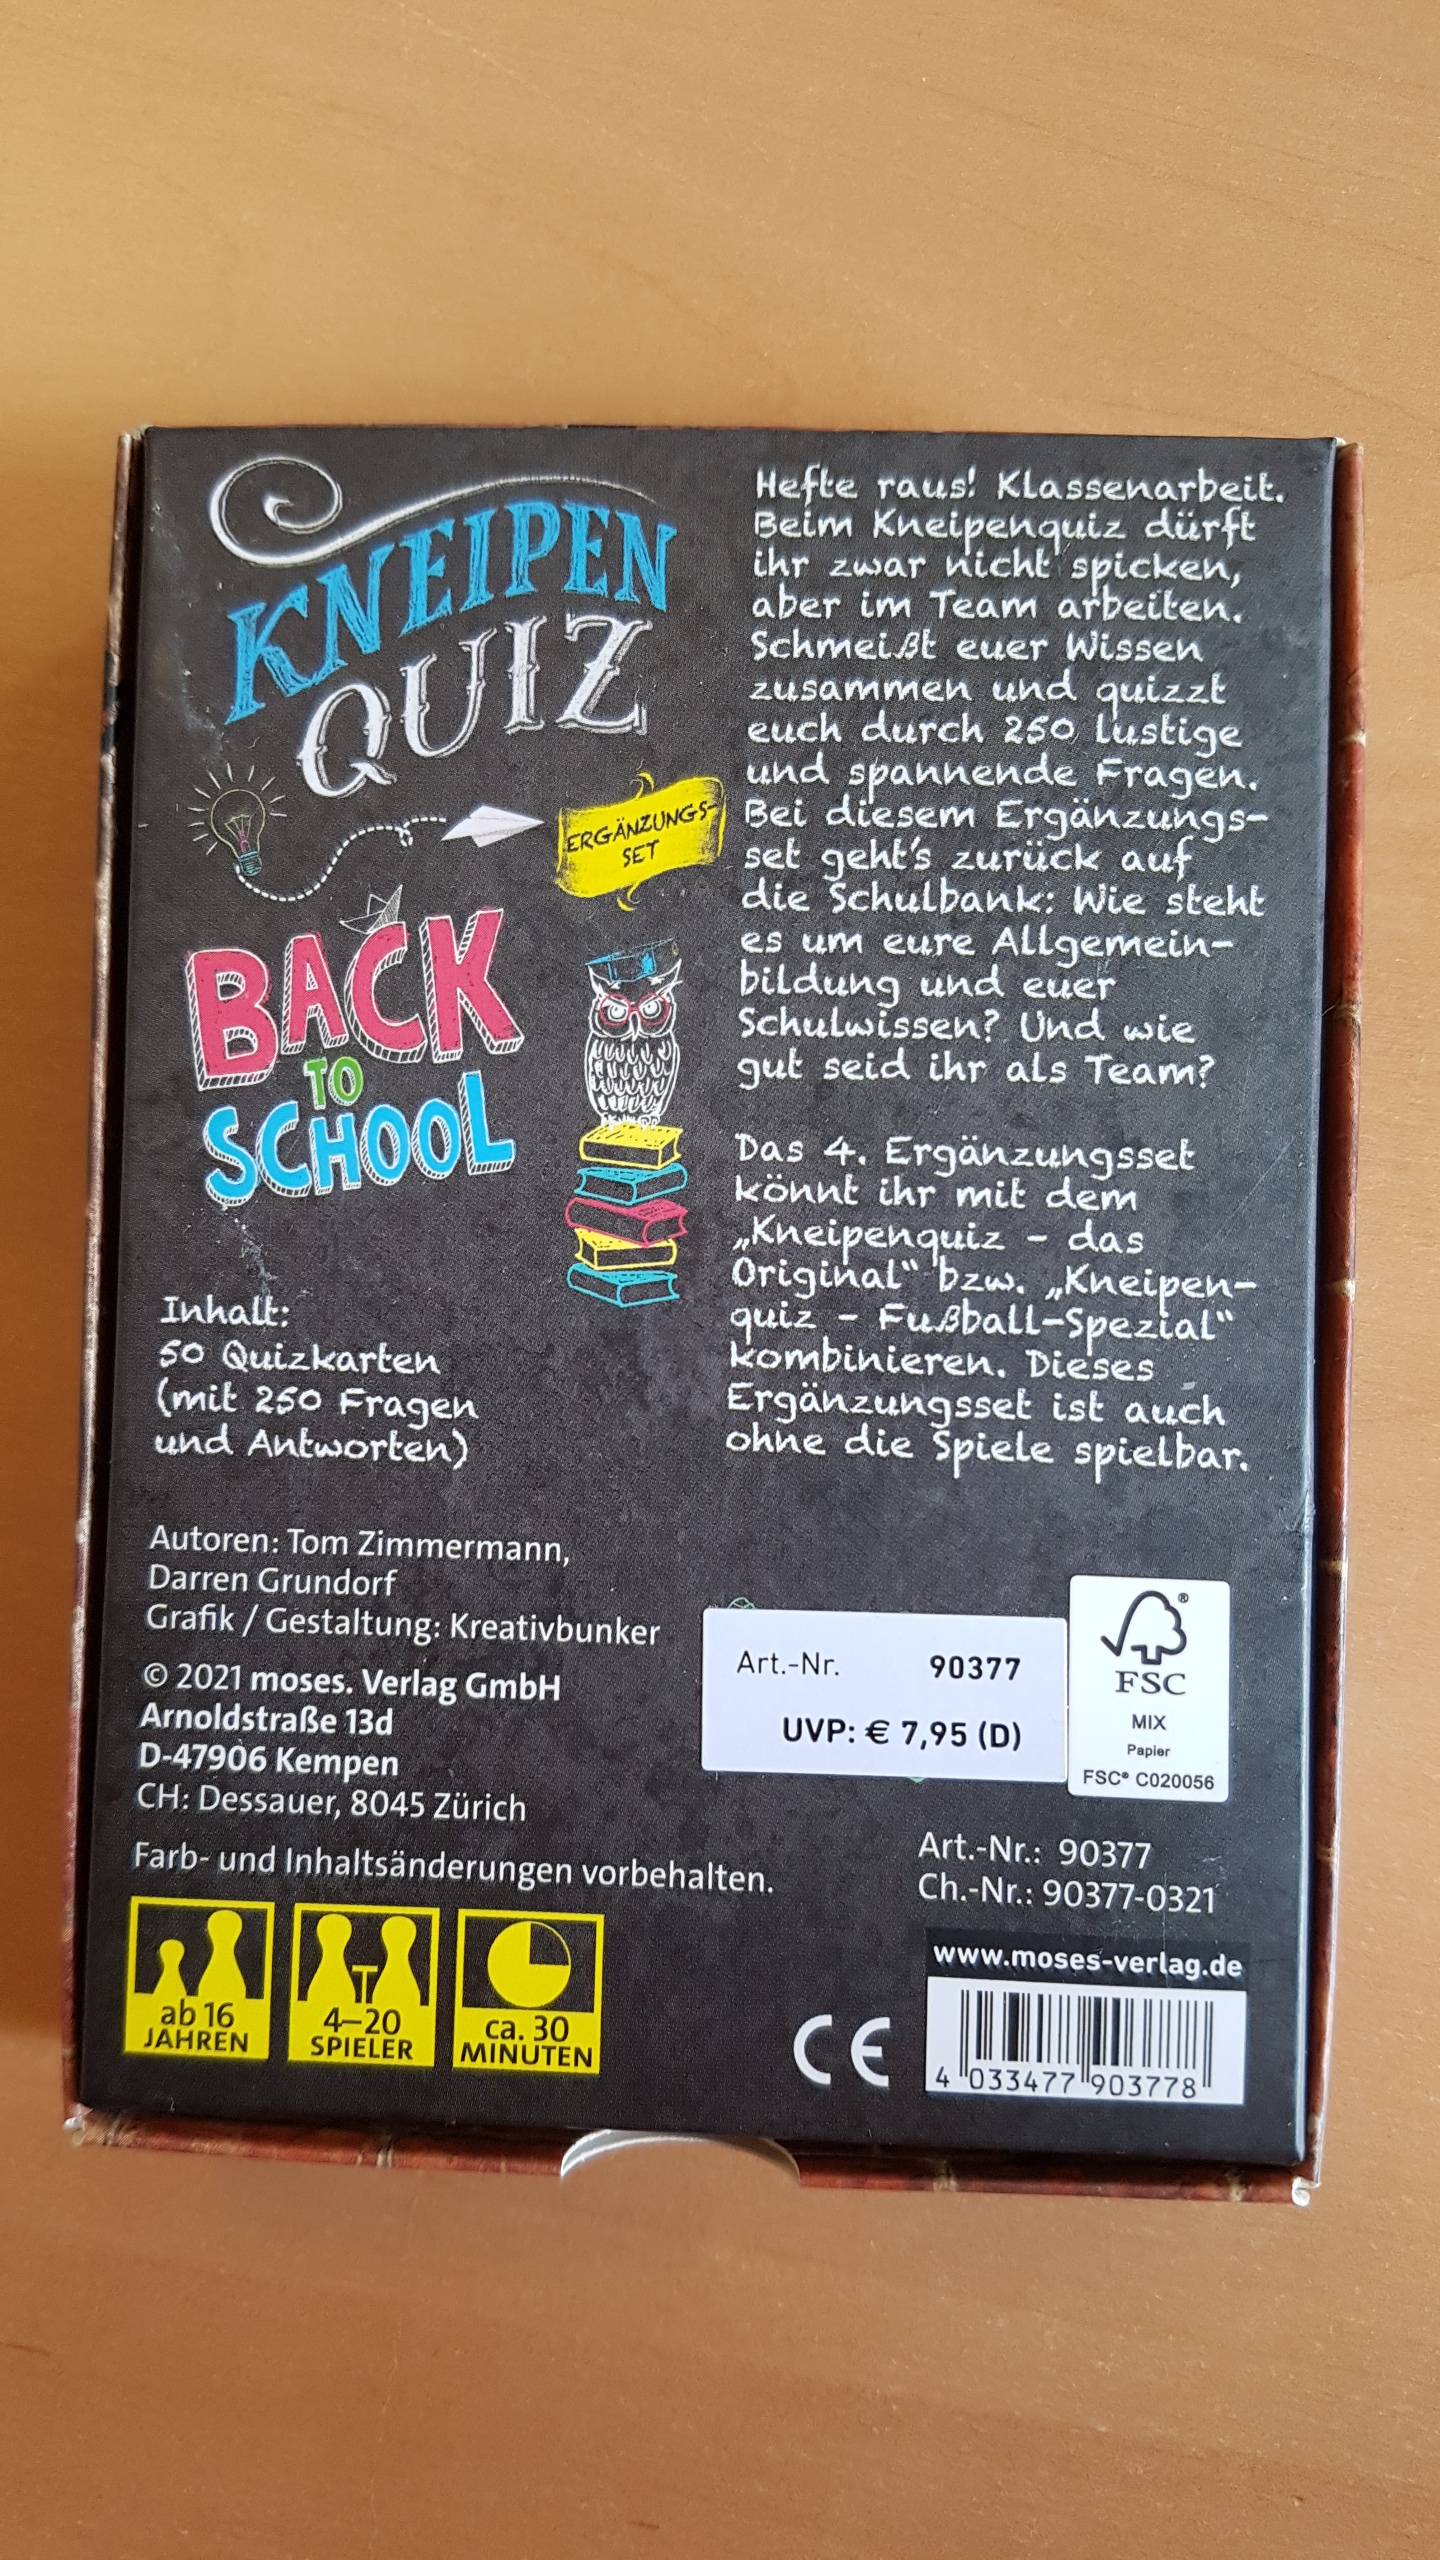 KNEIPEN
QUIZ
ERGÄNZUNGS-
SET
BACK
TO
SCHOOL
Inhalt:
50 Quizkarten
(mit 250 Fragen
und Antworten)
Hefte raus! Klassenarbeit.
Beim Kneipenquiz dürft
ihr zwar nicht spicken,
aber im Team arbeiten.
Schmeißt euer Wissen
zusammen und quizzt
euch durch 250 lustige
und spannende Fragen.
Bei diesem Ergänzungs-
set geht's zurück auf
die Schulbank: Wie steht
es um eure Allgemein-
bildung und euer
Schulwissen? Und wie
gut seid ihr als Team?
Das 4. Ergänzungsset
könnt ihr mit dem
„Kneipenquiz – das
Original“ bzw. „Kneipen-
quiz – Fußball-Spezial“
kombinieren. Dieses
Ergänzungsset ist auch
ohne die Spiele spielbar.
Autoren: Tom Zimmermann,
Darren Grundorf
Grafik / Gestaltung: Kreativbunker
© 2021 moses. Verlag GmbH
Arnoldstraße 13d
D-47906 Kempen
CH: Dessauer, 8045 Zürich
Farb- und Inhaltsänderungen vorbehalten.
Art.-Nr. 90377
UVP: € 7,95 (D)
®
FSC
MIX
Papier
FSC® C020056
Art.-Nr.: 90377
Ch.-Nr.: 90377-0321
www.moses-verlag.de
4 033477 903778
CE
ab 16
JAHREN
4–20
SPIELER
ca. 30
MINUTEN